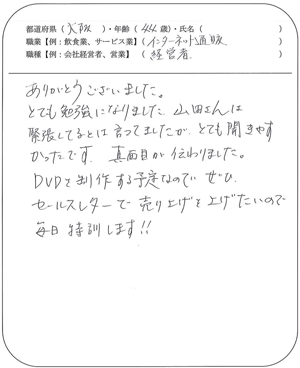 都道府県（大阪）・年齢（44歳）・氏名（　　　）
職業【例：飲食業、サービス業】（インターネット通販）
職種【例：会社経営者、営業】（経営者）
ありがとうございました。
とても勉強になりました 山田さんは
緊張してるとは言ってましたが、とても聞きやす
かったです。真面目が伝わりました。
DVDを制作する予定なので ぜひ
セールスレターで 売り上げを上げたいので
毎日 特訓します!!